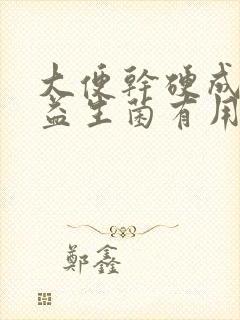 大便幹硬成
益生菌有用
鄭鑫